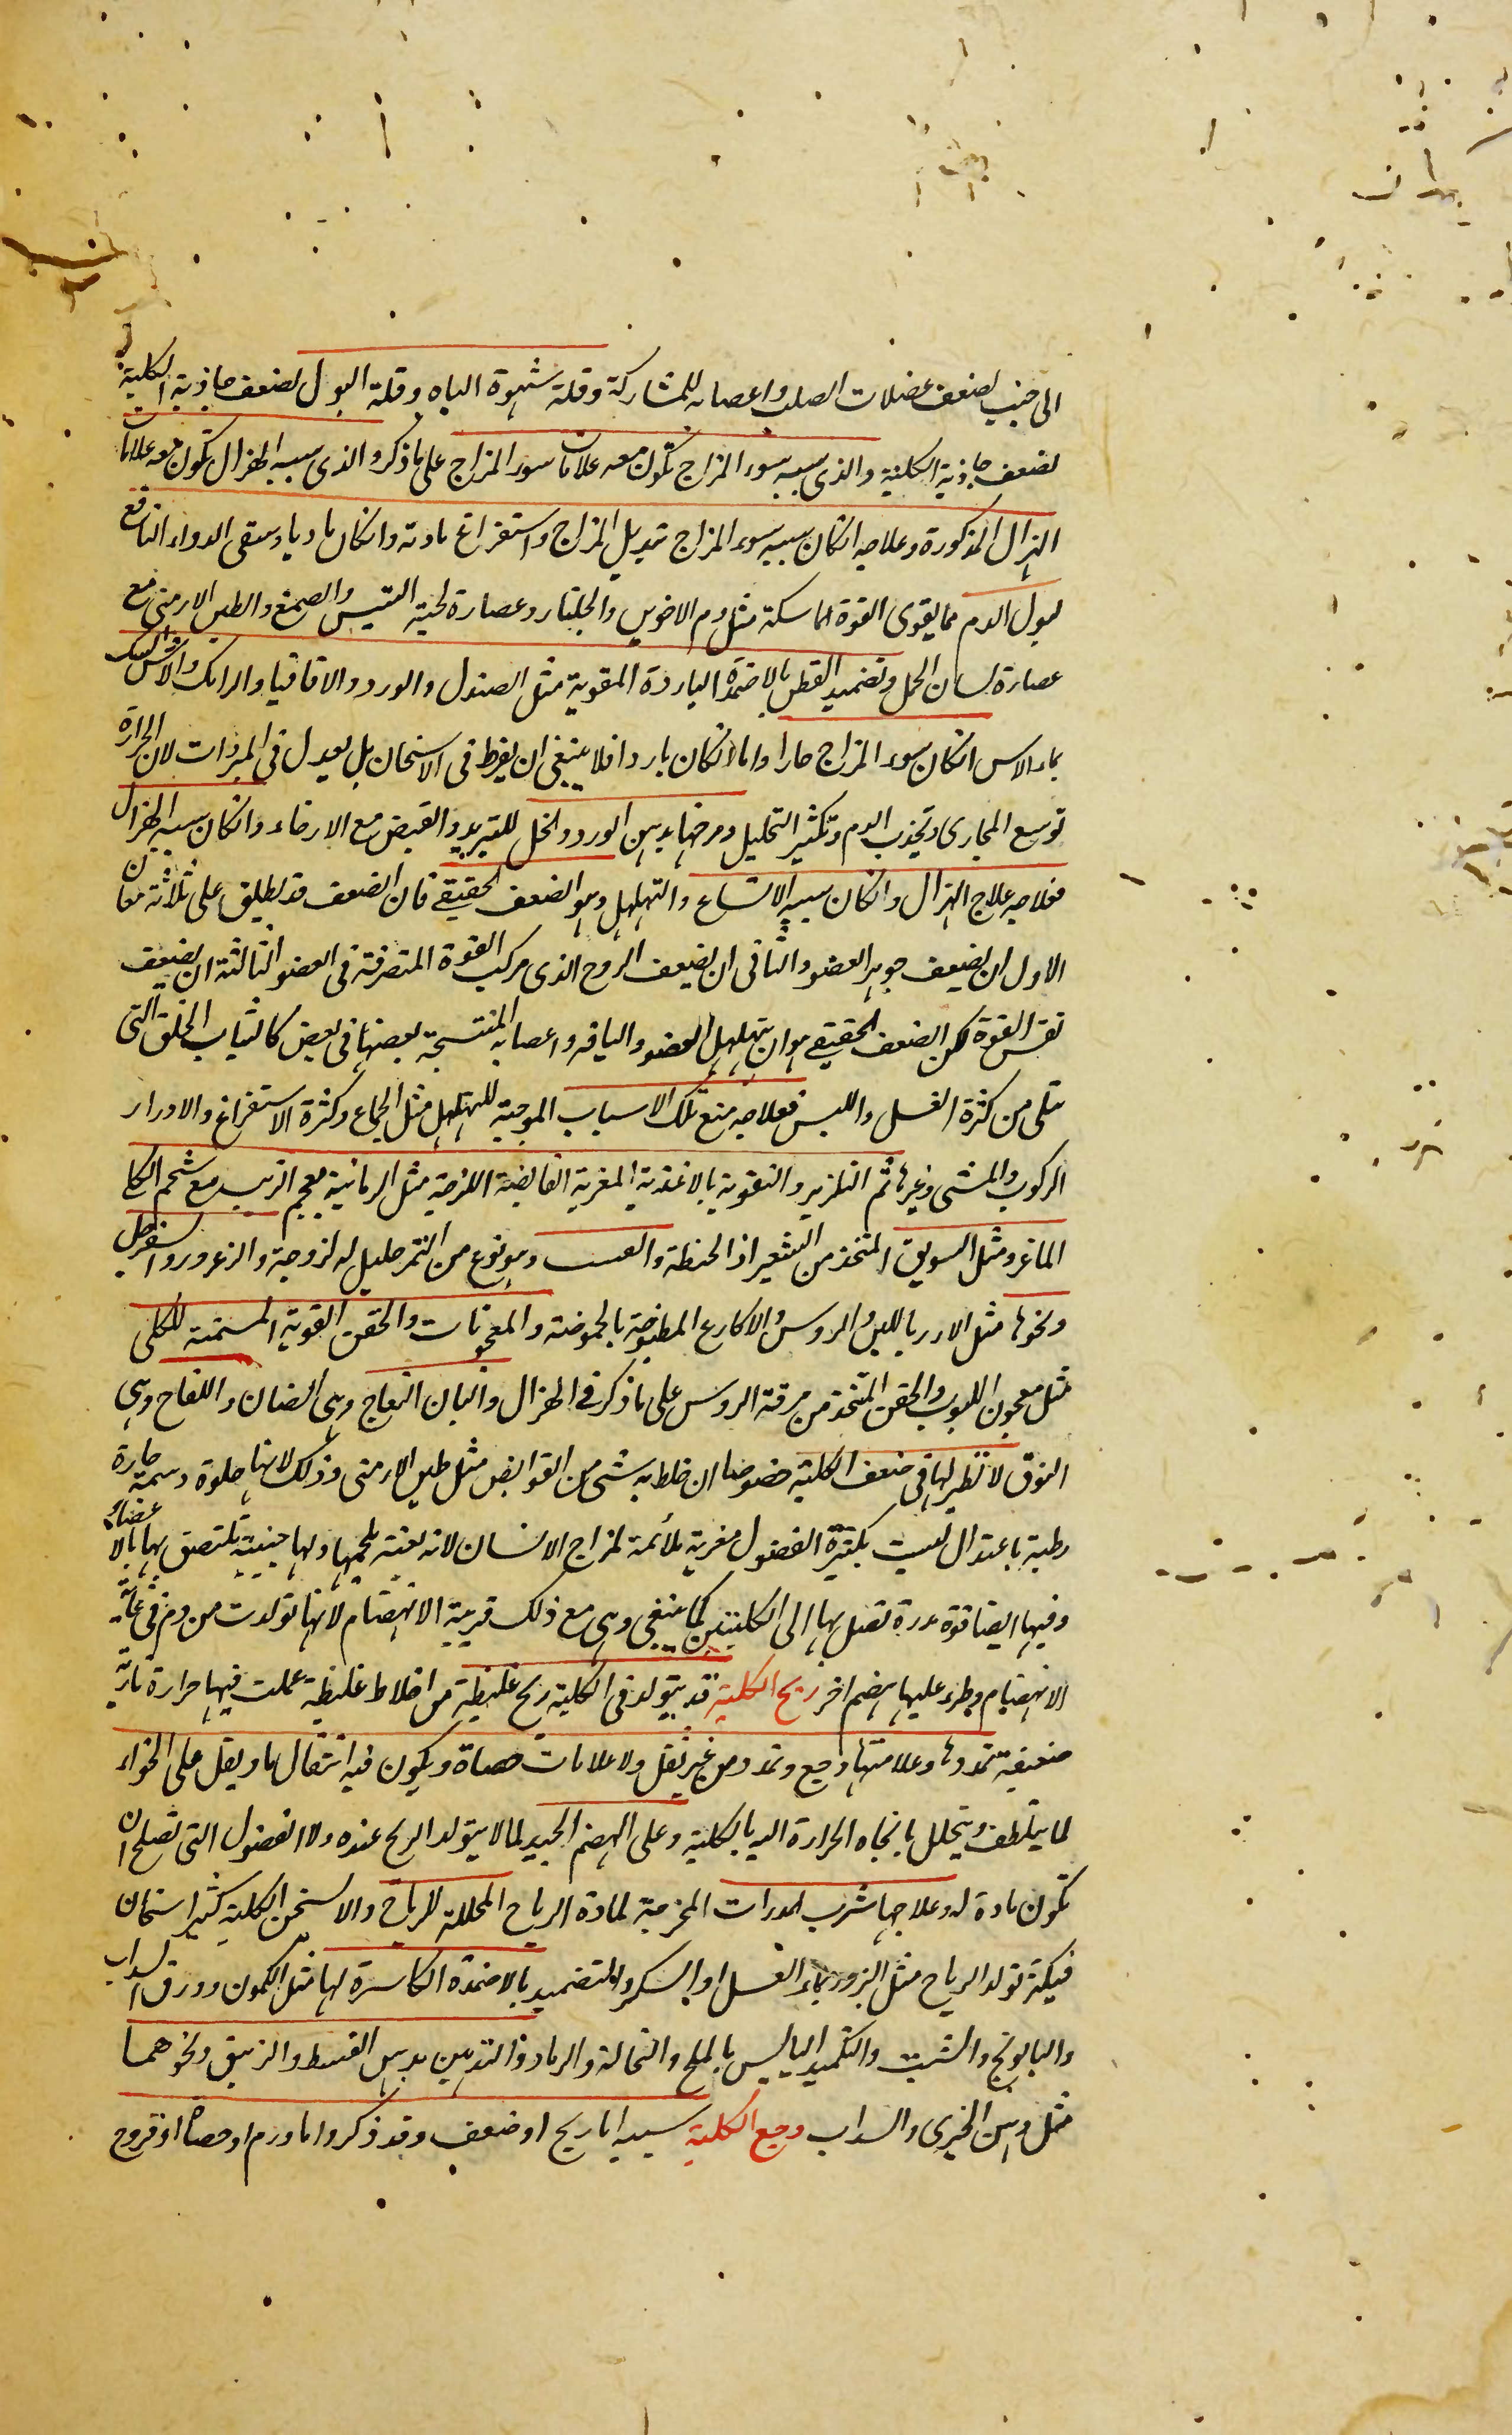 الى جنب لضعف عضلات الصلب واعصابه للمشاركة وقلة شهوة الباه وقلة البول لضعف جاذبة الكلية
لضعف جاذبة الكلية والذى سببه سوء المزاج تكون معه علامات سوء المزاج على ما ذكر والذى سببه الهزال تكون معه علامات
الهزال المذكورة وعلاجه انكان سببه سوء المزاج تبديل المزاج واستفراغ مادته وانكان ماديا وسقى الدواء النافع
لبول الدم مما يقوى القوة الماسكة مثل دم الاخوين والجلنار وعصارة لحية التيس والصمغ والطين الارمنى مع
عصارة لسان الحمل وتضميد القطن بالاضمدة الباردة المقوية مثل الصندل والورد والاقاقيا والرامك والاس
بماء الاس انكان سوء المزاج حارا واما انكان باردا فلا ينبغى ان يفرط فى الاسخان بل يعدل فى المبردات لان الحرارة
توسع المجارى وتجذب الدم وتكثير التحليل ومرخها بدهن الورد والخل للتبريد والقبض مع الارخاء وانكان سببه الهزال
فعلاجه علاج الهزال وانكان سببه الاتساع والتهلهل وهو الضعف الحقيقى فان الضعف قد يطلق على ثلاثة معان
الاول ان يضعف جوهر العضو والثانى ان يضعف الروح الذى مركب القوة المتصرفة فى العضو الثالثة ان يضعف
نفس القوة لكن الضعف الحقيقى هو ان يتهلهل العضو واليافه واعصابه المنتسجة بعضها فى بعض كالثياب الخلق التى
تبلى من كثرة الغسل واللبس فعلاجه منع تلك الاسباب الموجبة للتهلهل مثل الجماع وكثرة الاستفراغ والادرار
الركوب والمشى وغيرها ثم التلزيز والتقوية بالاغذية المغرية القابضة اللزجة مثل الرمانية بعجم الزبيب مع شحم الكلى
الماعز ومثل السويق المتخذ من الشعير اذ الحنطة والعسب وهو نوع من التمر جليل له لزوجة والزعرور والسفرجل
ونحوها مثل الارز باللبن والروس والاكارع المطبوخة بالحموضة والمعجونات والحقن القوية المسمنة للكلى
مثل معجون اللبوب والحقن المتخذ من مرقة الروس على ما ذكر فى الهزال والبان النعاج وهى الضان واللقاح وهى
النوق لا نظير لها فى ضعف الكلية خصوصا ان خلط به شىء من القوابض مثل طين الارمنى وذلك لانها حلوة دسمة حارة
رطبة باعتدال ليست بكثيرة الفضول مغرية ملائمة لمزاج الانسان لانه يغتذ بلحمها ولها جبنية تلتصق بها بالاعضاء
وفيها ايضا قوة مدرة تصل بها الى الكليتين كما ينبغى وهى مع ذلك قريبة الانهضام لانها تولدت من دم فى غاية
الانهضام وطرء عليها هضم اخر ريح الكلية قد يتولد فى الكلية ريح غليظة من اخلاط غليظة عملت فيها حرارة نارية
ضعيفة تمددها وعلامتها وجع وتمدد من غير ثقل ولا علامات حصاة ويكون فيه انتقال ما ويقل على الخواء
لما يتلطف ويتحلل باتجاه الحرارة اليه بالكلية وعلى الهضم الجيد لما لا يتولد الريح عنده ولا الفضول التى تصلح ان
تكون مادة له وعلاجها شرب المدرات المخرجة لمادة الرياح المحللة للرياح والا لسخن الكلية كثير اسخان
فيكثر تولد الرياح مثل البزور بماء العسل او السكر والتضميد بالاضمدة الكاسرة لها مثل الكمون وورق السداب
والبابونج والشبت والتكميد اليابس بالملح والنخالة والرماد والتدهين بدهن القسط والزنبق ونحوهما
مثل دهن الخيرى والسداب وجع الكلية سببه اما ريح او ضعف وقد ذكر واما ورم او حصاة او قروح